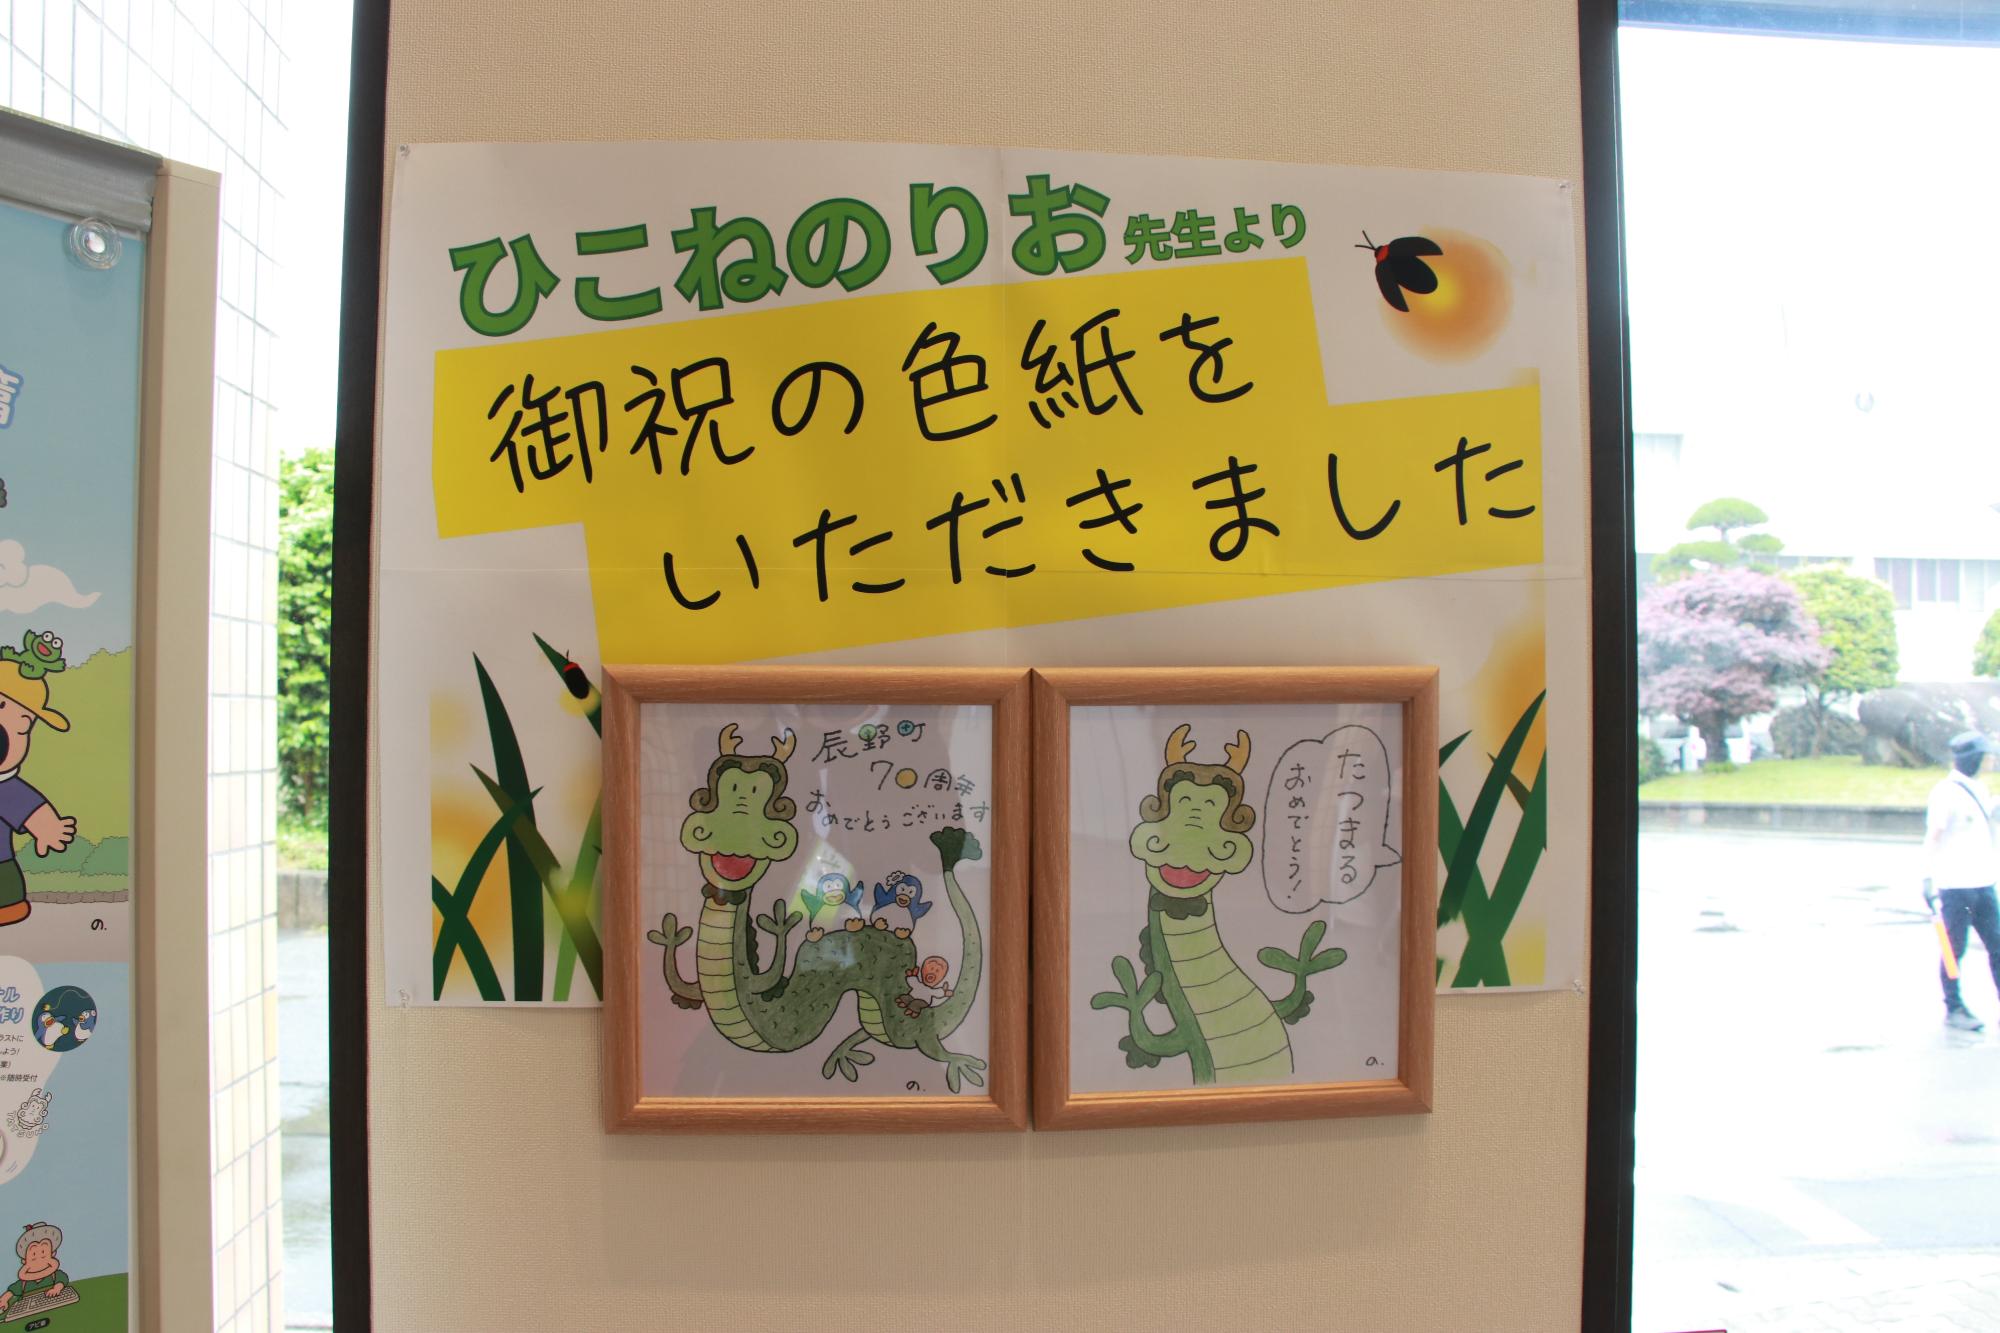 ひこねのりお先生より
御祝の色紙を
いただきました
辰野町
70周年
おめでとうございます
の.
たつまる
おめでとう!
の.
の.
※随時受付